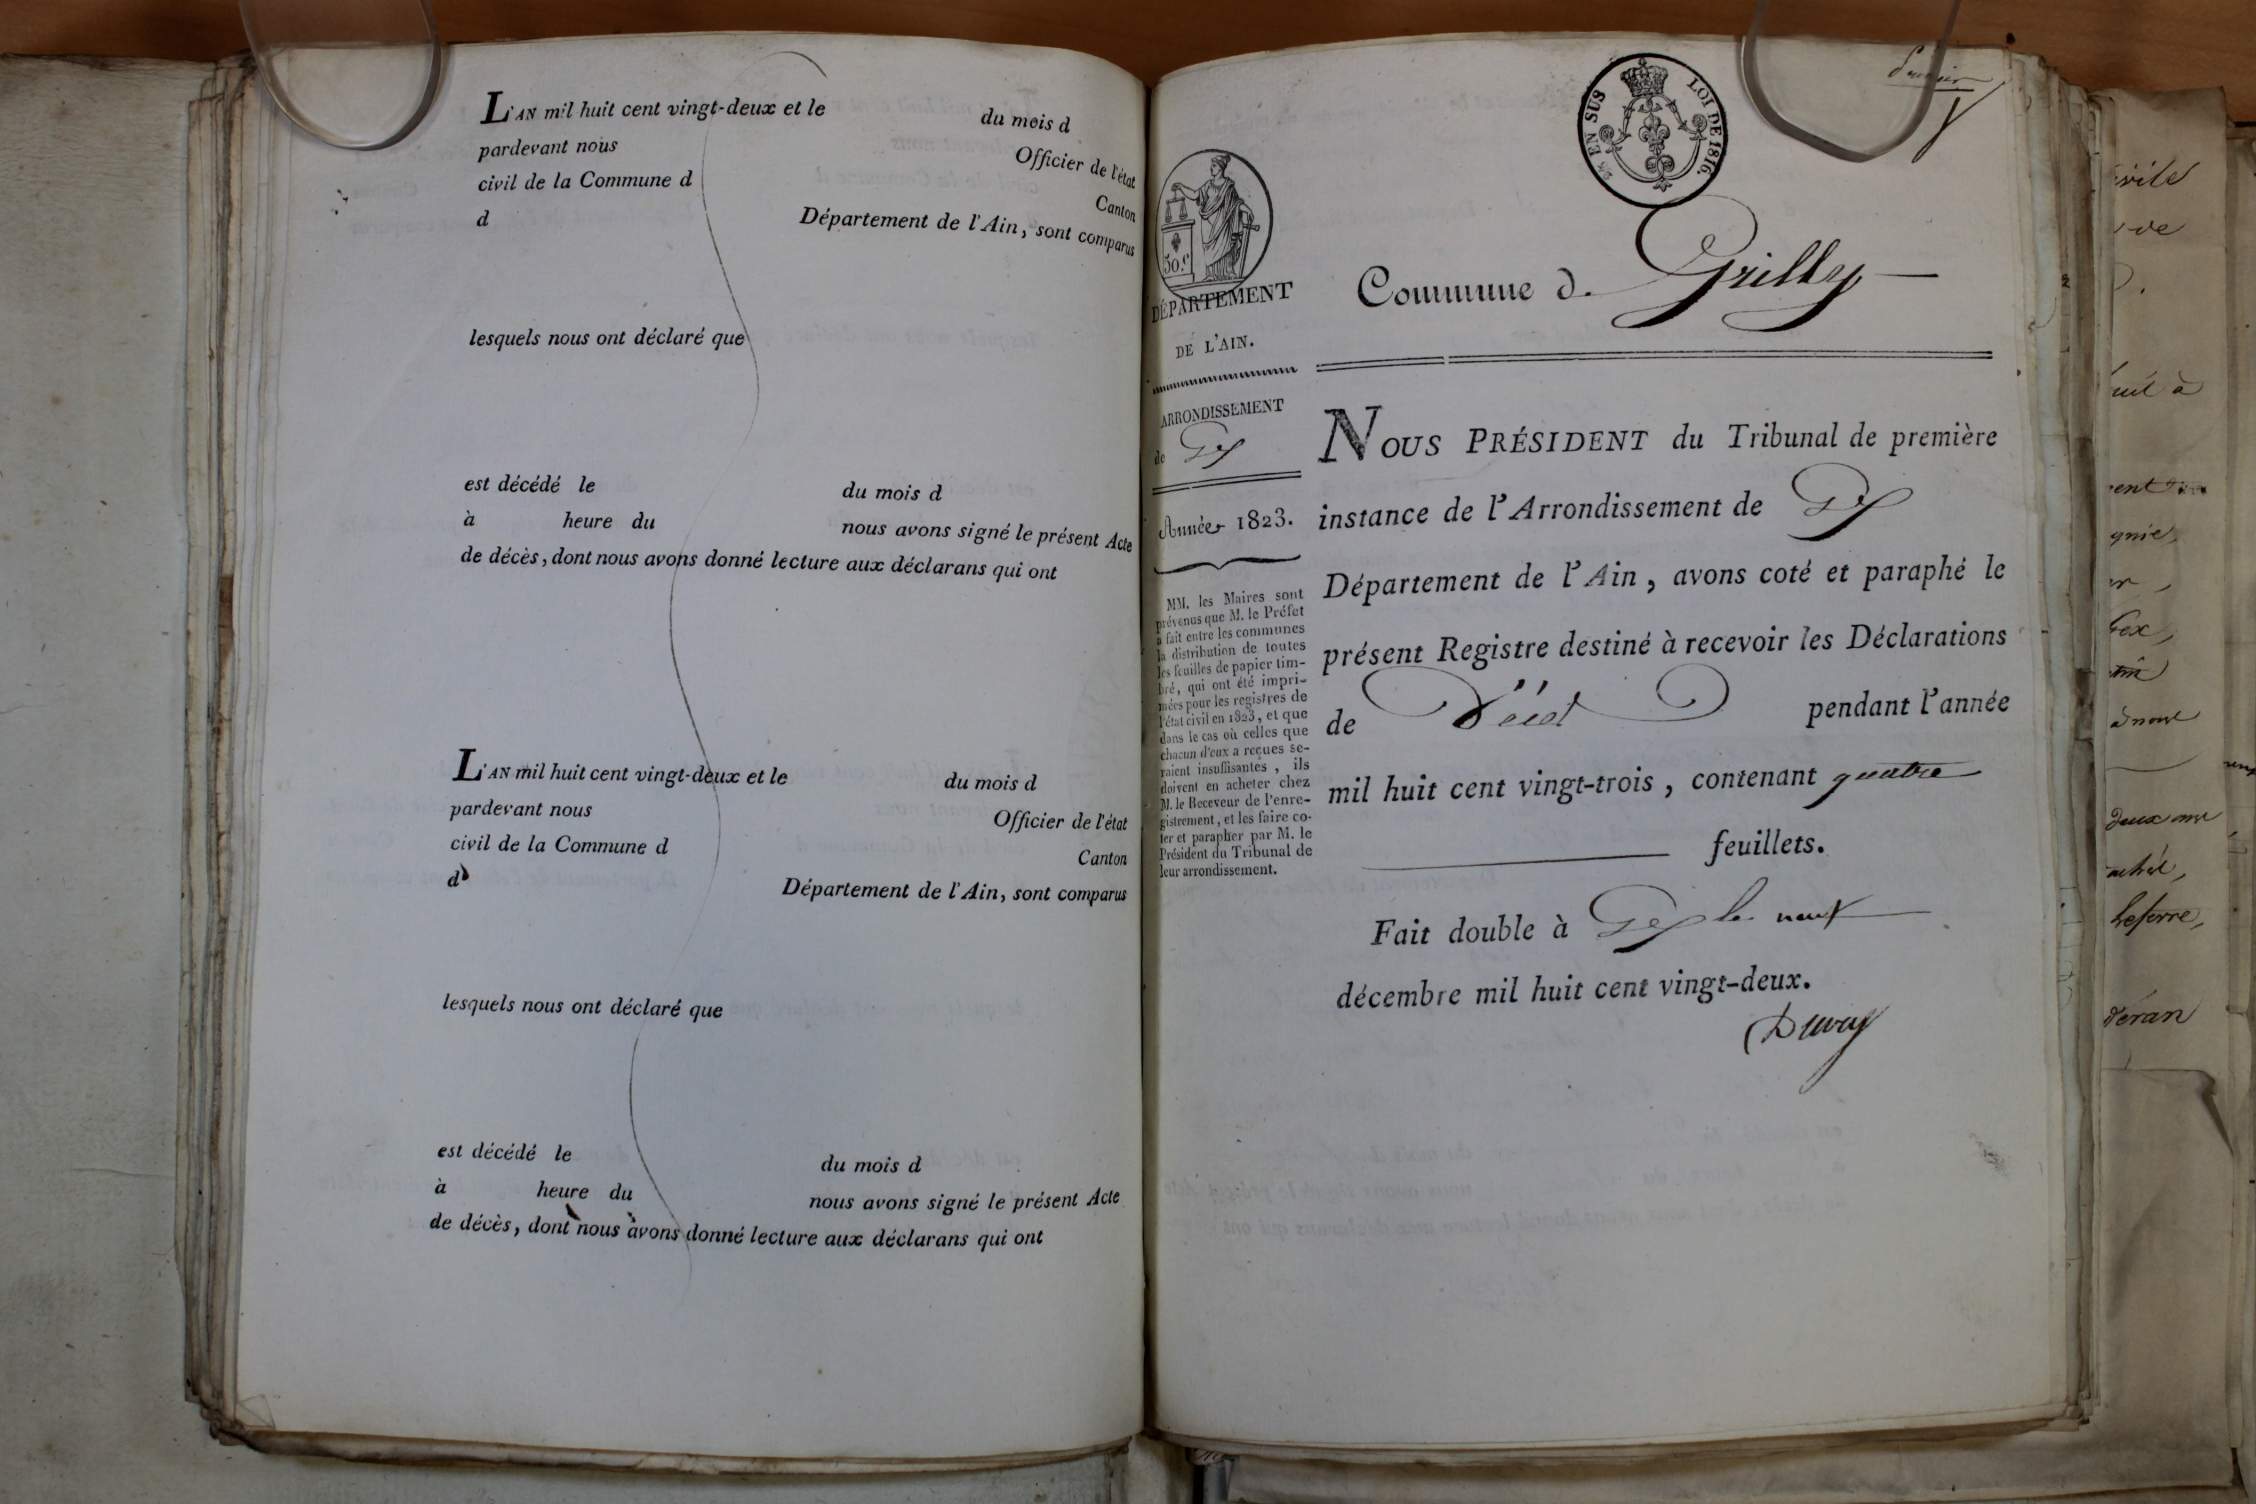 L'AN mil huit cent vingt-deux et le du mois d
pardevant nous Officier de l'état
civil de la Commune d Canton
d Département de l'Ain, sont comparus
lesquels nous ont déclaré que
est décédé le du mois d
à heure du nous avons signé le présent Acte
de décès, dont nous avons donné lecture aux déclarans qui ont
L'AN mil huit cent vingt-deux et le du mois d
pardevant nous Officier de l'état
civil de la Commune d Canton
d Département de l'Ain, sont comparus
lesquels nous ont déclaré que
est décédé le du mois d
à heure du nous avons signé le présent Acte
de décès, dont nous avons donné lecture aux déclarans qui ont
EN SUS LOI DE 1816.
50.c
DÉPARTEMENT
DE L'AIN.
ARRONDISSEMENT
de Gex
Année 1823.
MM. les Maires sont
prévenus que M. le Préfet
a fait entre les communes
la distribution de toutes
les feuilles de papier tim-
bré, qui ont été impri-
mées pour les registres de
l'état civil en 1823, et que
dans le cas où celles que
chacun d'eux a reçues se-
raient insuffisantes, ils
doivent en acheter chez
M. le Receveur de l'enre-
gistrement, et les faire co-
ter et parapher par M. le
Président du Tribunal de
leur arrondissement.
Commune d. Grilly
NOUS PRÉSIDENT du Tribunal de première
instance de l'Arrondissement de Gex
Département de l'Ain, avons coté et paraphé le
présent Registre destiné à recevoir les Déclarations
de Décès pendant l'année
mil huit cent vingt-trois, contenant quatre
feuillets.
Fait double à Gex le neuf
décembre mil huit cent vingt-deux.